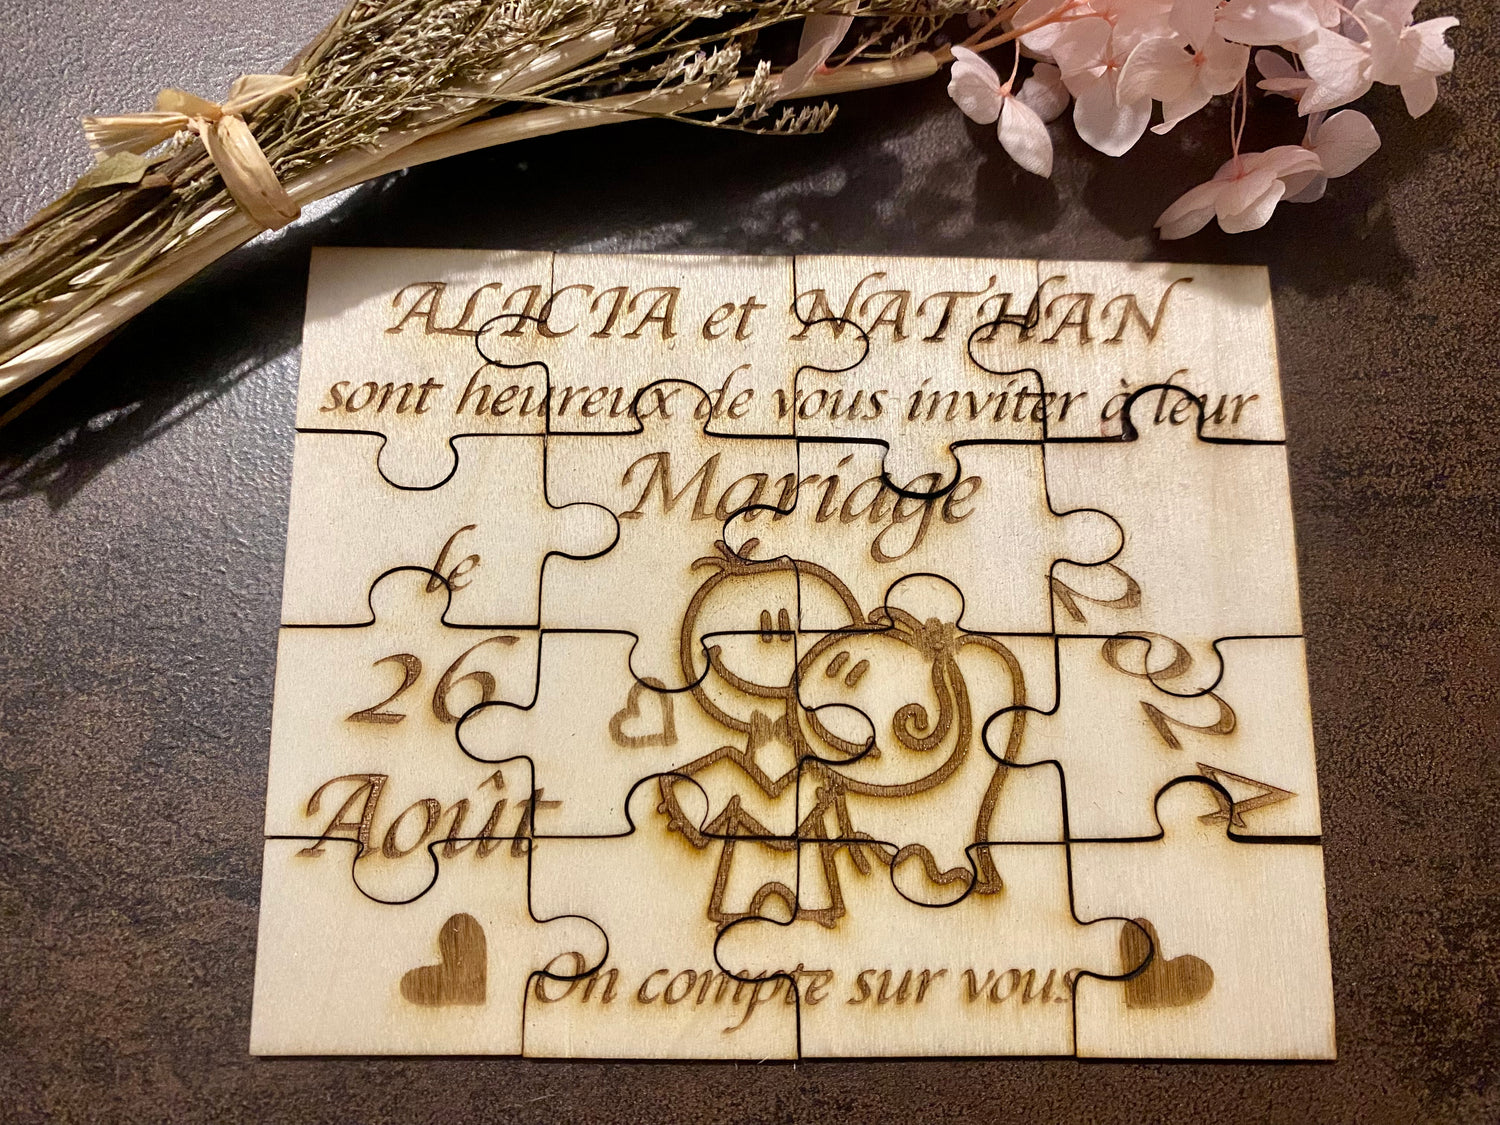 ALICIA et NATHAN
sont heureux de vous inviter à leur
Mariage
le
26
Août
2024
On compte sur vous